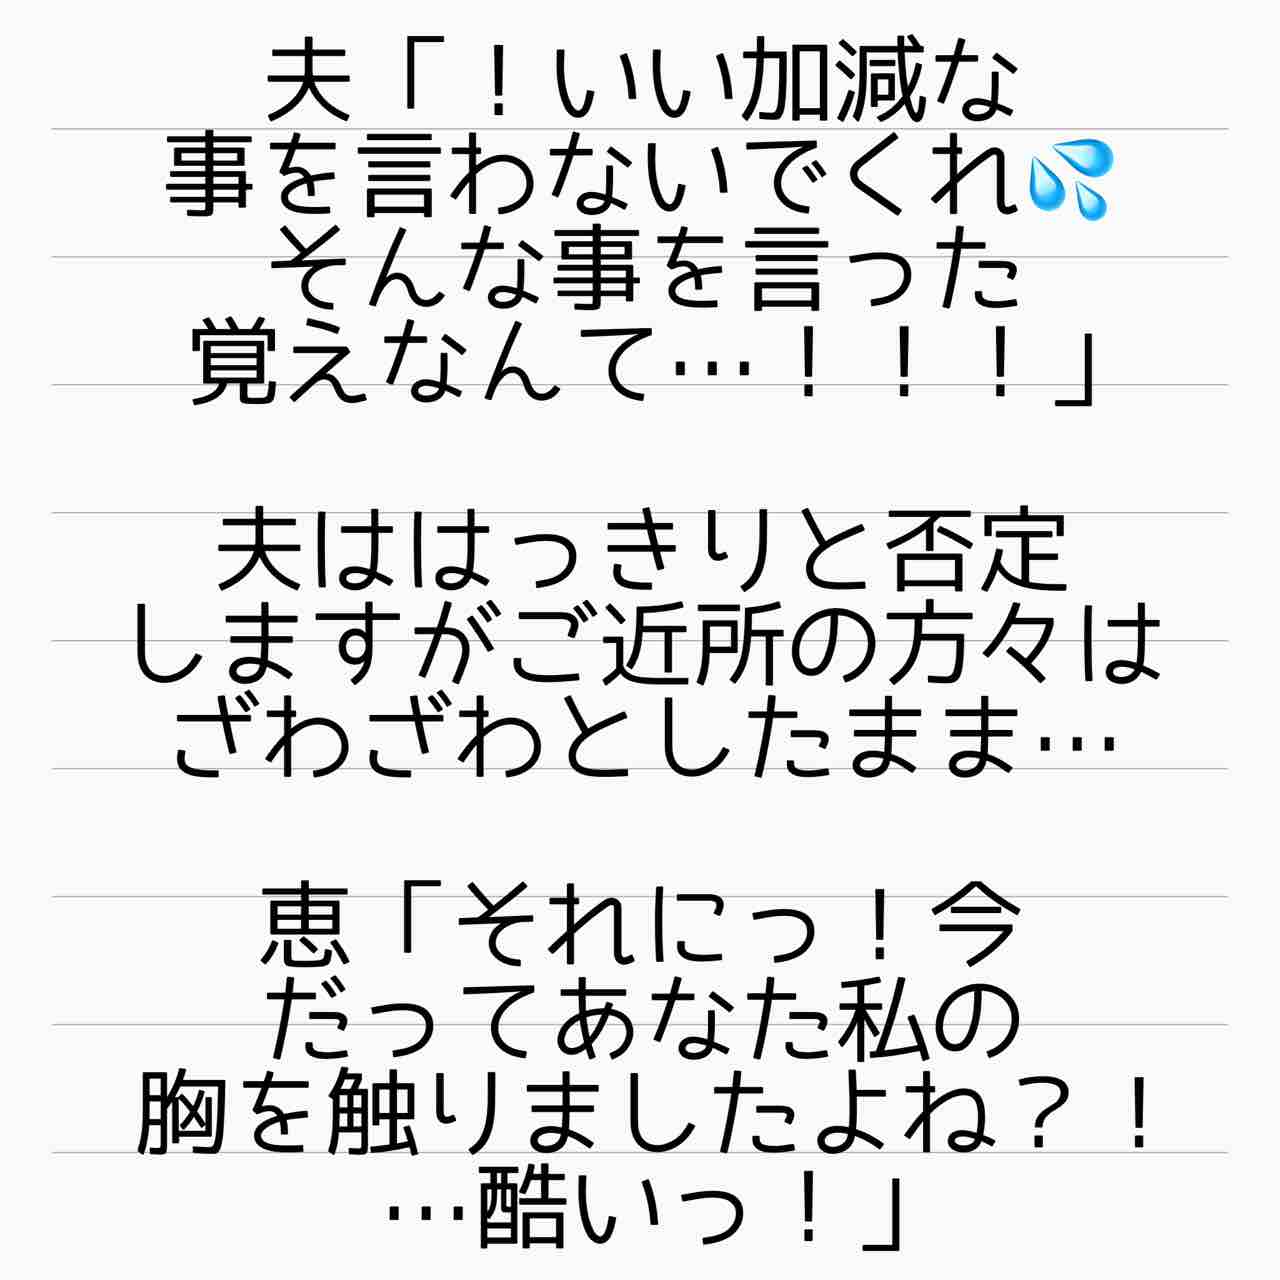 夫「！いい加減な
事を言わないでくれ💦
そんな事を言った
覚えなんて…！！！」
夫ははっきりと否定
しますがご近所の方々は
ざわざわとしたまま…
恵「それにっ！今
だってあなた私の
胸を触りましたよね？！
…酷いっ！」